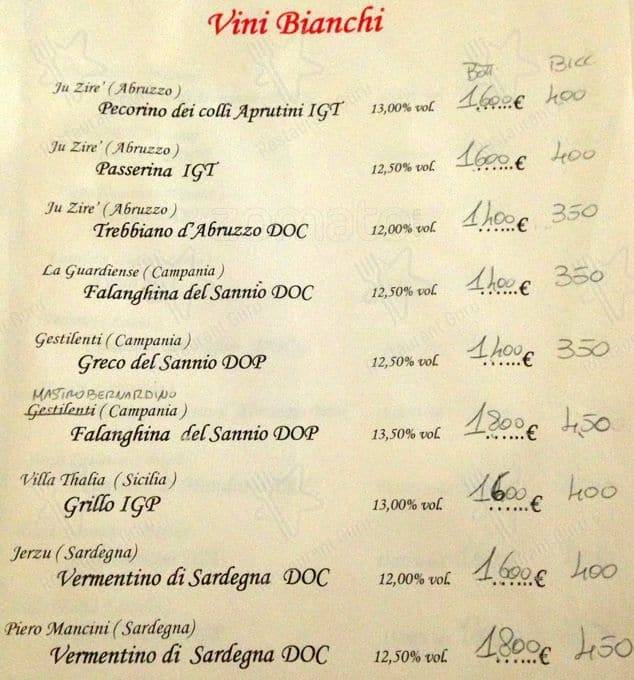 Vini Bianchi
Bott Bicc
Ju Zire' ( Abruzzo )
Pecorino dei colli Aprutini IGT 13,00% vol. 1600 ......€ 400
Ju Zire' ( Abruzzo )
Passerina IGT 12,50% vol. 1600 ......€ 400
Ju Zire' ( Abruzzo )
Trebbiano d'Abruzzo DOC 12,00% vol. 1400 ......€ 350
La Guardiense ( Campania )
Falanghina del Sannio DOC 12,50% vol. 1400 ......€ 350
Gestilenti ( Campania )
Greco del Sannio DOP 12,50% vol. 1400 ......€ 350
MASTROBERNARDINO
Gestilenti ( Campania )
Falanghina del Sannio DOP 13,50% vol. 1800 ......€ 450
Villa Thalia ( Sicilia )
Grillo IGP 13,00% vol. 1600 ......€ 400
Jerzu ( Sardegna)
Vermentino di Sardegna DOC 12,00% vol. 1600 ......€ 400
Piero Mancini ( Sardegna)
Vermentino di Sardegna DOC 12,50% vol. 1800 ......€ 450